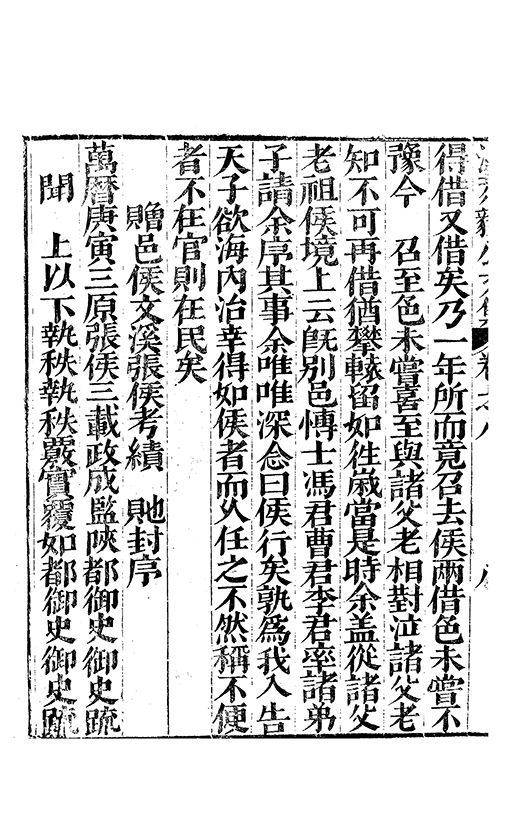 得借又借矣乃一年所而竟召去侯兩借色未嘗不
豫今　召至色未嘗喜至與諸父老相對泣諸父老
知不可再借猶攀轅留如徃歲當是時余盖從諸父
老祖侯境上云旣别邑愽士馮君曹君李君率諸弟
子請余序其事余唯唯深念曰侯行矣孰爲我入告
天子欲海内治幸得如侯者而久任之不然稱不便
者不在官則在民矣
贈邑侯文溪張侯考績　貤封序
萬曆庚寅三原張侯三載政成監陜都御史御史疏
聞　上以下執秩執秩覈實覆如都御史御史疏